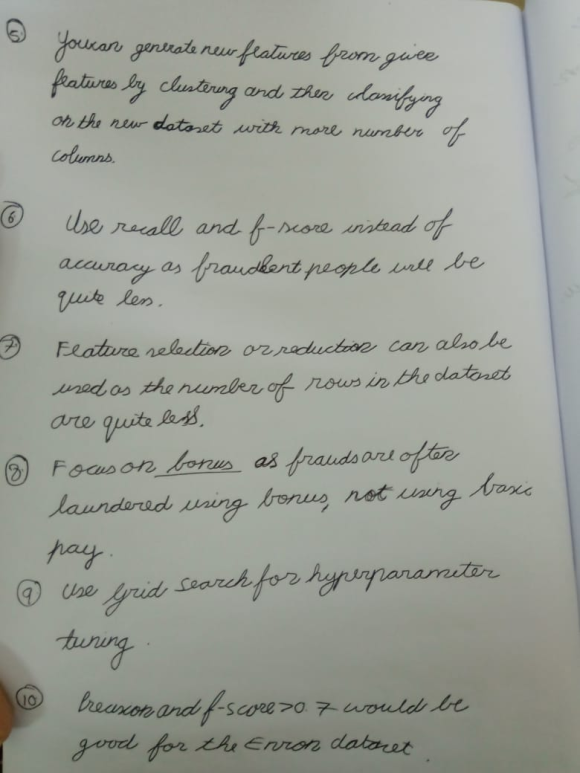 5. You can generate new features from given
features by clustering and then classifying
on the new dataset with more number of
columns.
6 Use recall and f-score instead of
accuracy as fraudulent people will be
quite less.
7. Feature selection or reduction can also be
used as the number of rows in the dataset
are quite less.
8 Focus on bonus as frauds are often
laundered using bonus, not using basic
pay.
9 Use grid search for hyperparameter
tuning.
10 Precision and f-score > 0.7 would be
good for the Enron dataset.